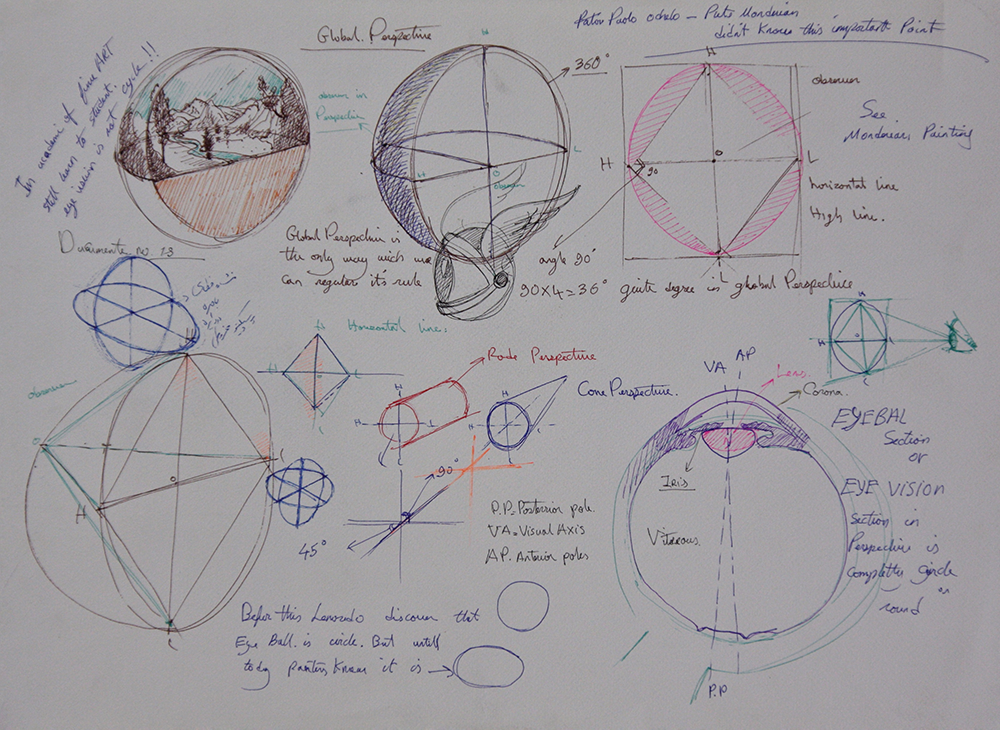 Global. Perspective
Pator Paolo ochelo – Piete Monderian
didn't Known this important Point
In academi of fine ART
still learn to student.
eye vision is not cycle !!
observer in
Perspective
360°
H
L
H
O
observer
H
observer
See
Monderian Painting
H
O
L
90
horizontal line
High line.
L
angle 90°
90X4=36° quite degree is global Perspective
Global Perspective is
the only way wich we
can regular it's rule
Documente no 13
Horizontal line.
H
L
L
observer
H
O
O
L
H
L
Rode Perspective
H
H
L
Cone Perspective.
H
H
L
90°
45°
P.P. Posterior pole.
VA = Visual Axis
AP. Anterior poles
VA
AP
Lens.
Corona.
Iris
Vitreous.
P.P
H
H
O
L
EYEBAL
Section
or
EYE VISION
Section in
Perspective is
complette circle
or
round
Befor this Leonardo discover that
Eye Ball. is circle. But untill
today painters Known it is →